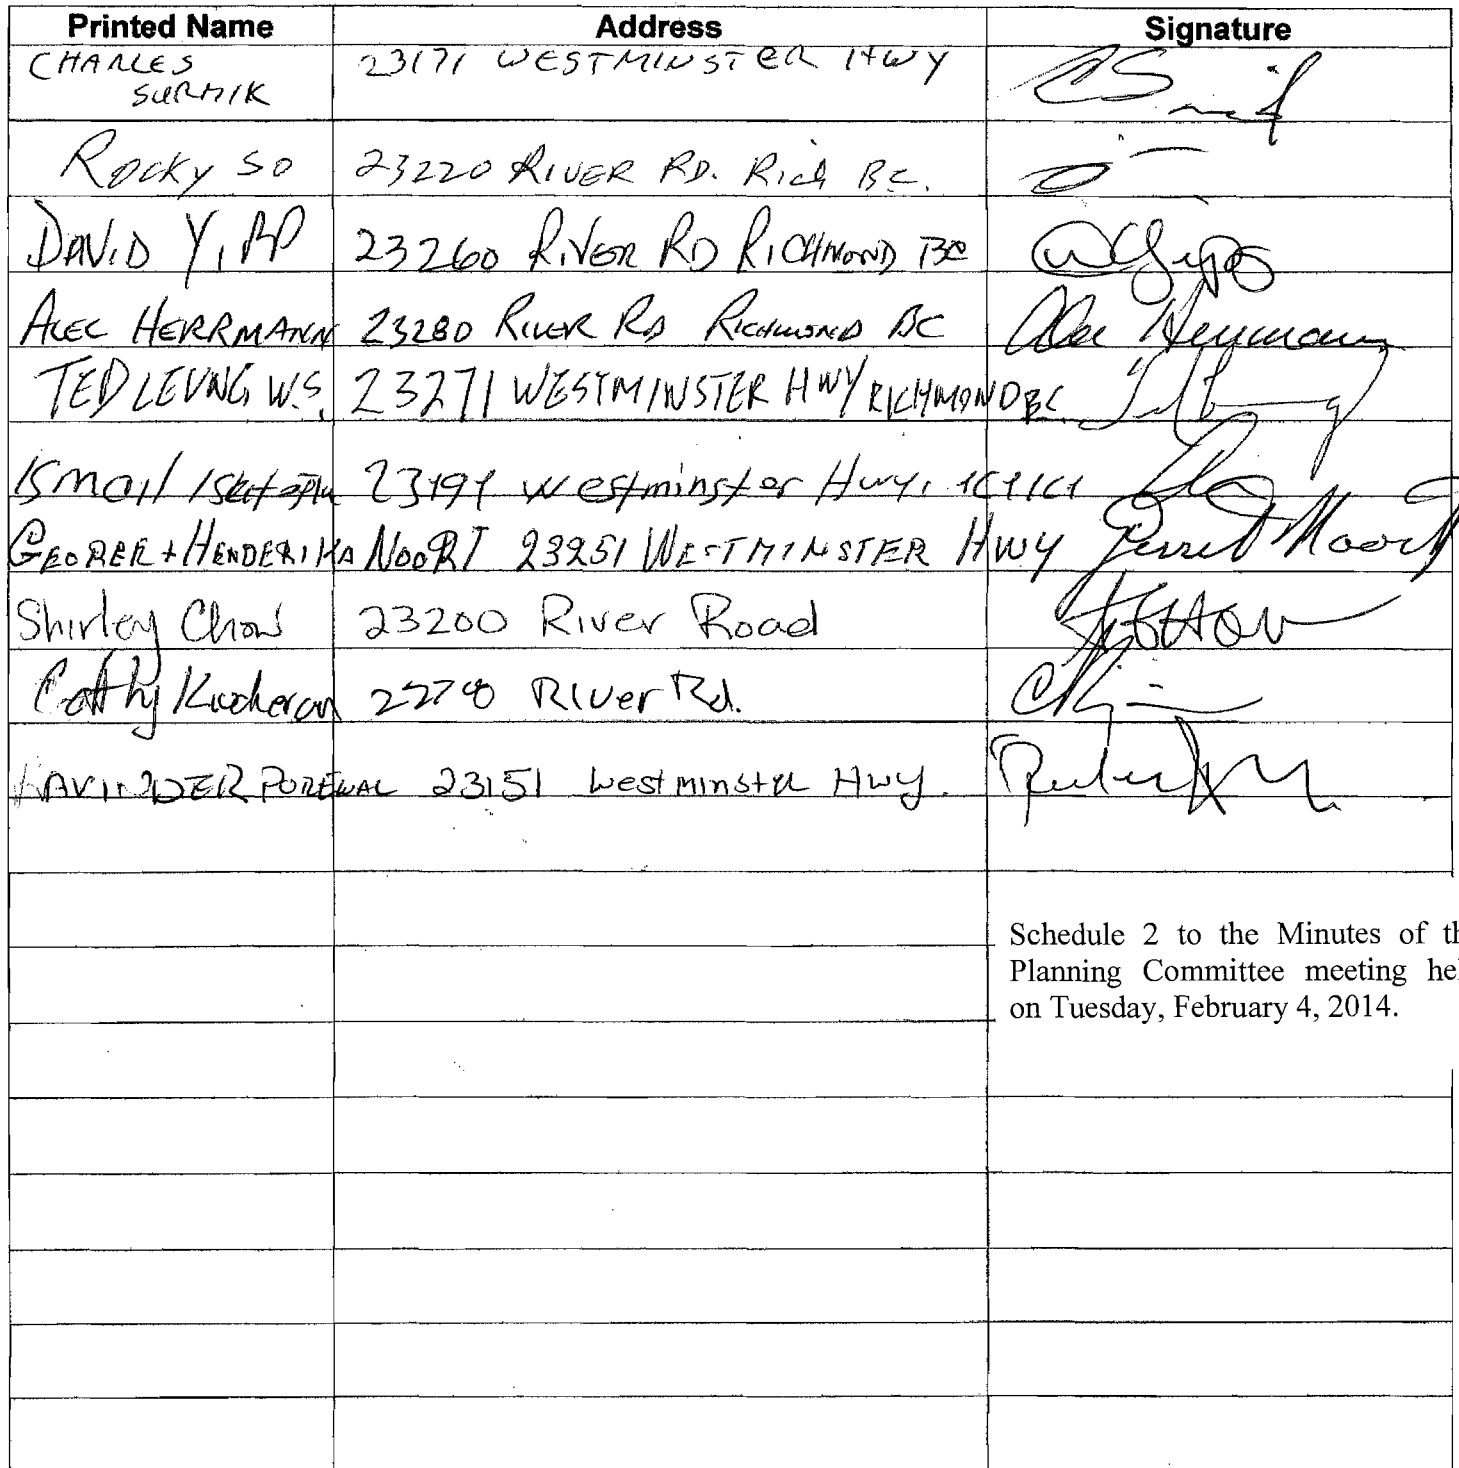 Printed Name Address Signature
CHARLES 23171 WESTMINSTER HWY
SURMIK
ROCKY SO 23220 RIVER RD. Rich BC.
DAVID YIPP 23260 RIVER RD RICHMOND BC
ALEC HERRMANN 23280 RIVER RD RICHMOND BC Alec Herrmann
TED LEUNG W.S. 23271 WESTMINSTER HWY RICHMOND BC
Ismail 23191 Westminster Hwy,
GEORER + HENDERIKA NOORT 23251 WESTMINSTER HWY Gerrit Noort
Shirley Chow 23200 River Road
Cathy Kucheran River Rd.
POREWAL 23151 Westminster Hwy.
Schedule 2 to the Minutes of
Planning Committee meeting
on Tuesday, February 4, 2014.